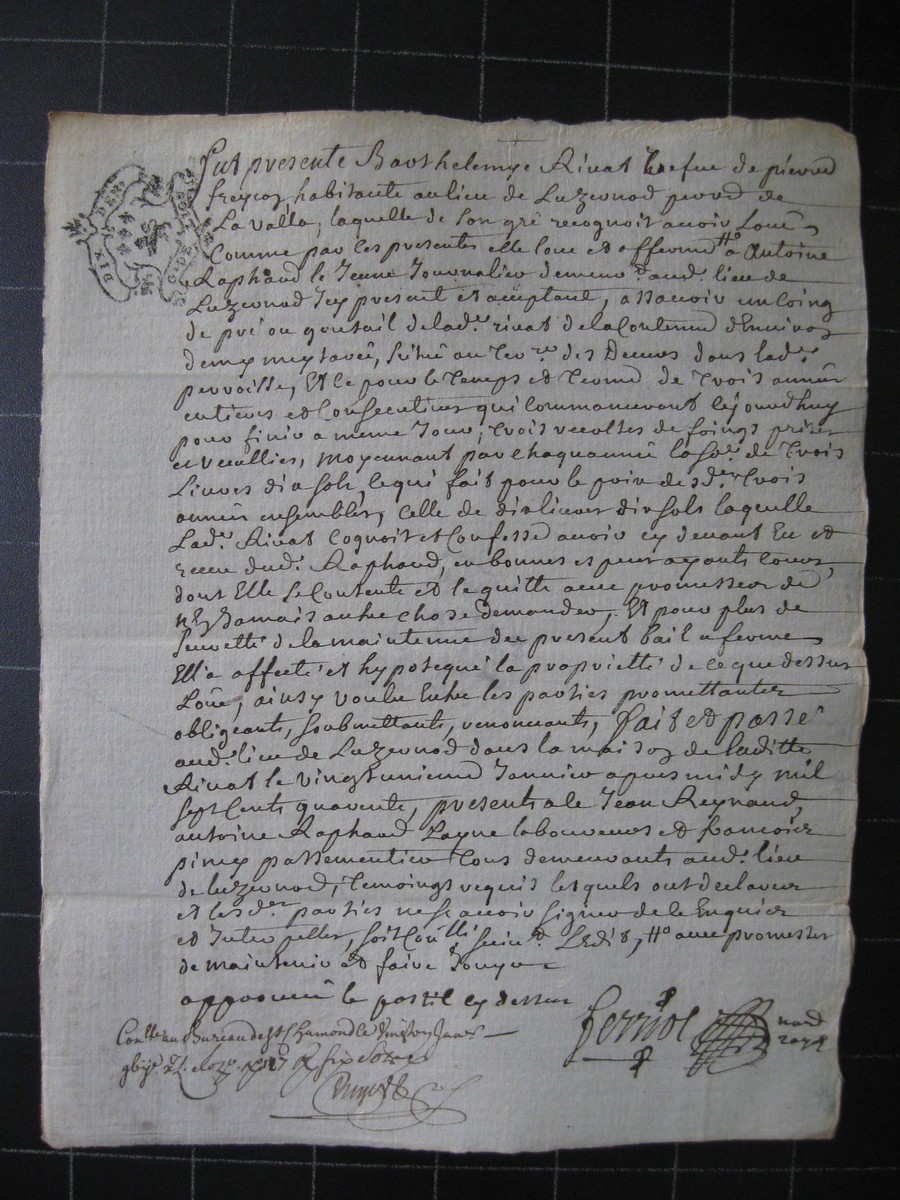 DIX DEN
G. DE
Fut presente Barthelemye Rivat vefue de pierre
freycon habitante au lieu de Luzernod parr.d de
La Valla, laquelle de son gré recognoit avoir Loüé
Comme par ces presentes elle loue et afferme #° a Antoine
Raphaud le Jeune Journalier demeur.t aud.t lieu de
Luzernod Icy present et acceptant, assavoir un Coing
de pré ou de lad.e rivat de la Contenue d'Environ
demy meytareé, Scitué au Terr.re des dans lad.e
parroisse, Et ce pour le Temps et Terme de Trois années
entieres et Consecutives qui Commanceront cejourdhuy
pour finir a meme Jour, Trois recoltes de foings prises
et recullies, moyennant par chaque année la So.e de Trois
Livres dix sols, ce qui fait pour le prix desd.es Trois
années ensembles, Celle de dix livres dix sols laquelle
Lad.e Rivat Cognoit et Confesse avoir cy devant Eu et
receu dud.t Raphaud, en bonnes especes ayants Cours,
dont Elle Se Contente et le quitte avec promesses de
n'En Jamais autre chose demander, Et pour plus de
seuretté de la maintenue du present bail a ferme
Ell'a affecté et hypotequé la proprietté de ce que dessus
Loüé, ainsy voulu Entre les parties promettantes
obligeants, soubmettants, renonceants, fait et passé
aud.t lieu de Luzernod dans la maison de laditte
Rivat le vingt unieme Janvier apres midy mil
sept Cents quarente, presents a ce Jean Reynaud,
antoine Raphaud Layne laboureurs et francois
piney passementier Tous demeurants aud.t lieu
de luzernod, Temoings requis lesquels ont declarer
et lesd.es parties ne scavoir signer de ce Enquies
et Interpeller, soit Con.llé Suiv.t L'edit, #° avec promesses
de maintenir et faire Jouyr
approuvé le postil cy dessus
ferriol
no.re royal
Con.llé au Bureau de St Chamond le Janv.
six sols